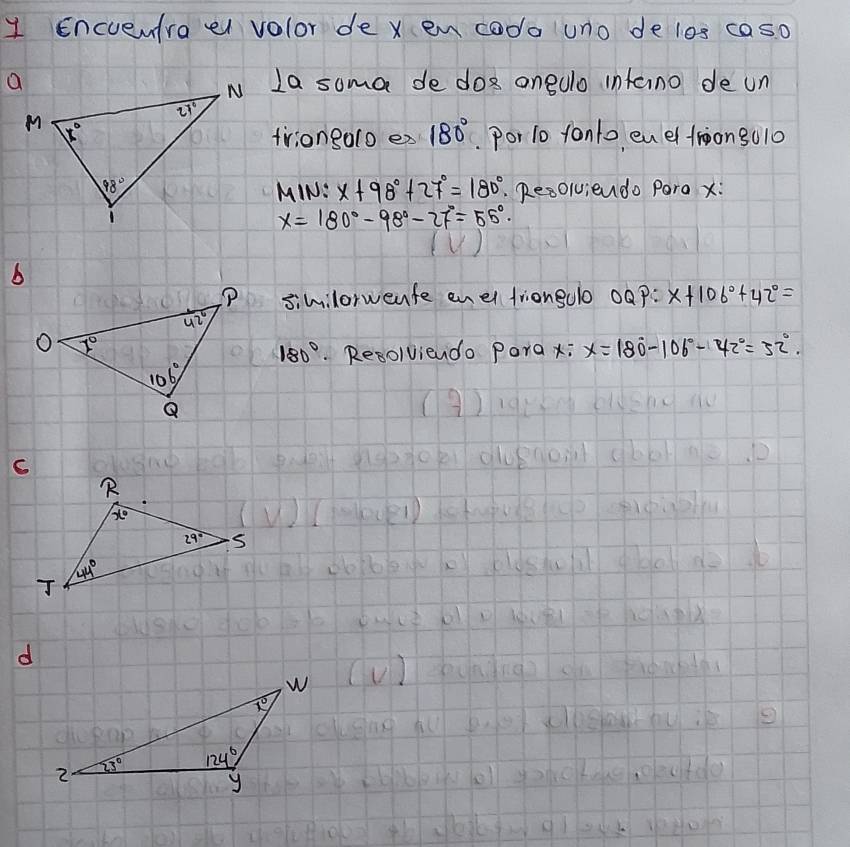 1 Encuentra el valor de x en cada uno de los caso
a
La soma de dos angulo interno de un
triangolo es 180°. Por lo tanto, en el triangulo
MIN: x + 98° + 27° = 180°. Resolviendo para x:
x = 180° - 98° - 27° = 55°.
M
N
I
x°
27°
98°
b
similarmente en el triangulo OQP: x + 106° + 42° =
180°. Resolviendo para x: x = 180 - 106° - 42° = 32°.
P
42°
O
x°
106°
Q
c
R
x°
29°
S
44°
J
d
W
x°
23°
124°
Z
y